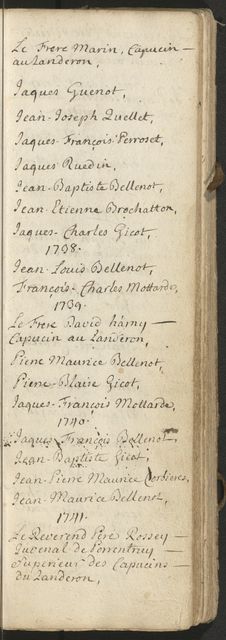 Le Frere Marin, Capucin —
au Landeron,
Jaques Guenot,
Jean-Joseph Quellet,
Jaques-François Perroset,
Jaques Ruedin,
Jean-Baptiste Bellenot,
Jean Etienne Brochatton,
Jaques-Charles Gicot,
1738.
Jean-Louis Bellenot,
François-Charles Mottarde,
1739.
Le Frere David hámy —
Capucin au Landeron,
Piere Maurice Bellenot,
Piere-Blaise Gicot,
Jaques-François Mottarde,
1740.
Jaques François Bellenot,
Jean-Baptiste Gicot,
Jean-Piere Maurice Corbieres,
Jean-Maurice Bellenot,
1741.
Le Reverend Pere Rossey —
Juvenal de Porrentruy —
Superieur des Capucins —
du Landeron,